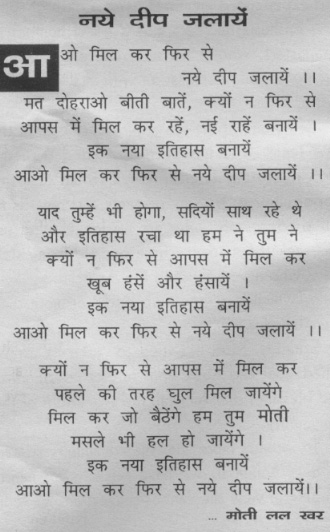 नये दीप जलायें
आओ मिल कर फिर से
नये दीप जलायें ।।
मत दोहराओ बीती बातें, क्यों न फिर से
आपस में मिल कर रहें, नई राहें बनायें ।
इक नया इतिहास बनायें
आओ मिल कर फिर से नये दीप जलायें ।।
याद तुम्हें भी होगा, सदियों साथ रहे थे
और इतिहास रचा था हम ने तुम ने
क्यों न फिर से आपस में मिल कर
खूब हंसें और हंसायें ।
इक नया इतिहास बनायें
आओ मिल कर फिर से नये दीप जलायें ।।
क्यों न फिर से आपस में मिल कर
पहले की तरह घुल मिल जायेंगे
मिल कर जो बैठेंगे हम तुम मोती
मसले भी हल हो जायेंगे ।
इक नया इतिहास बनायें
आओ मिल कर फिर से नये दीप जलायें।।
... मोती लल खर